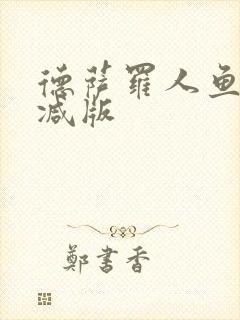 德萨罗人鱼
减版
鄭書香